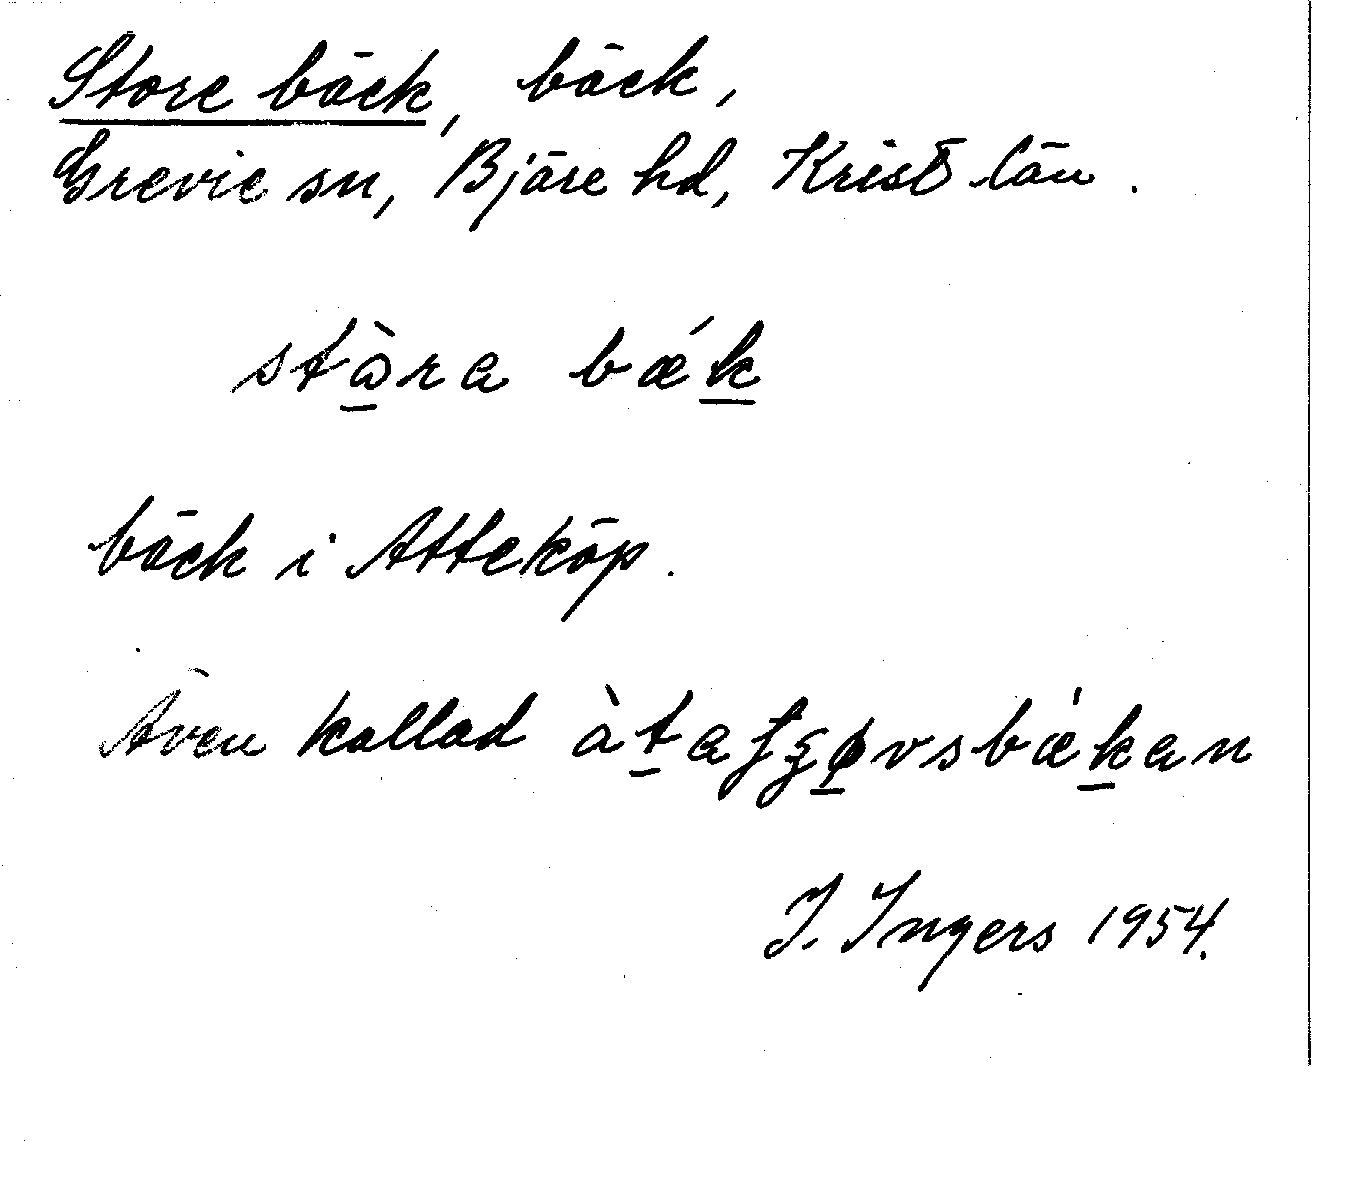 Store bäck, bäck,
Grevie sn, Bjäre hd, Krist län.
stὰ̱ra bǽḵ
bäck i Atteköp.
Även kallad àṯaʄʒø̱vsbæ̍ḵan
I. Ingers 1954.